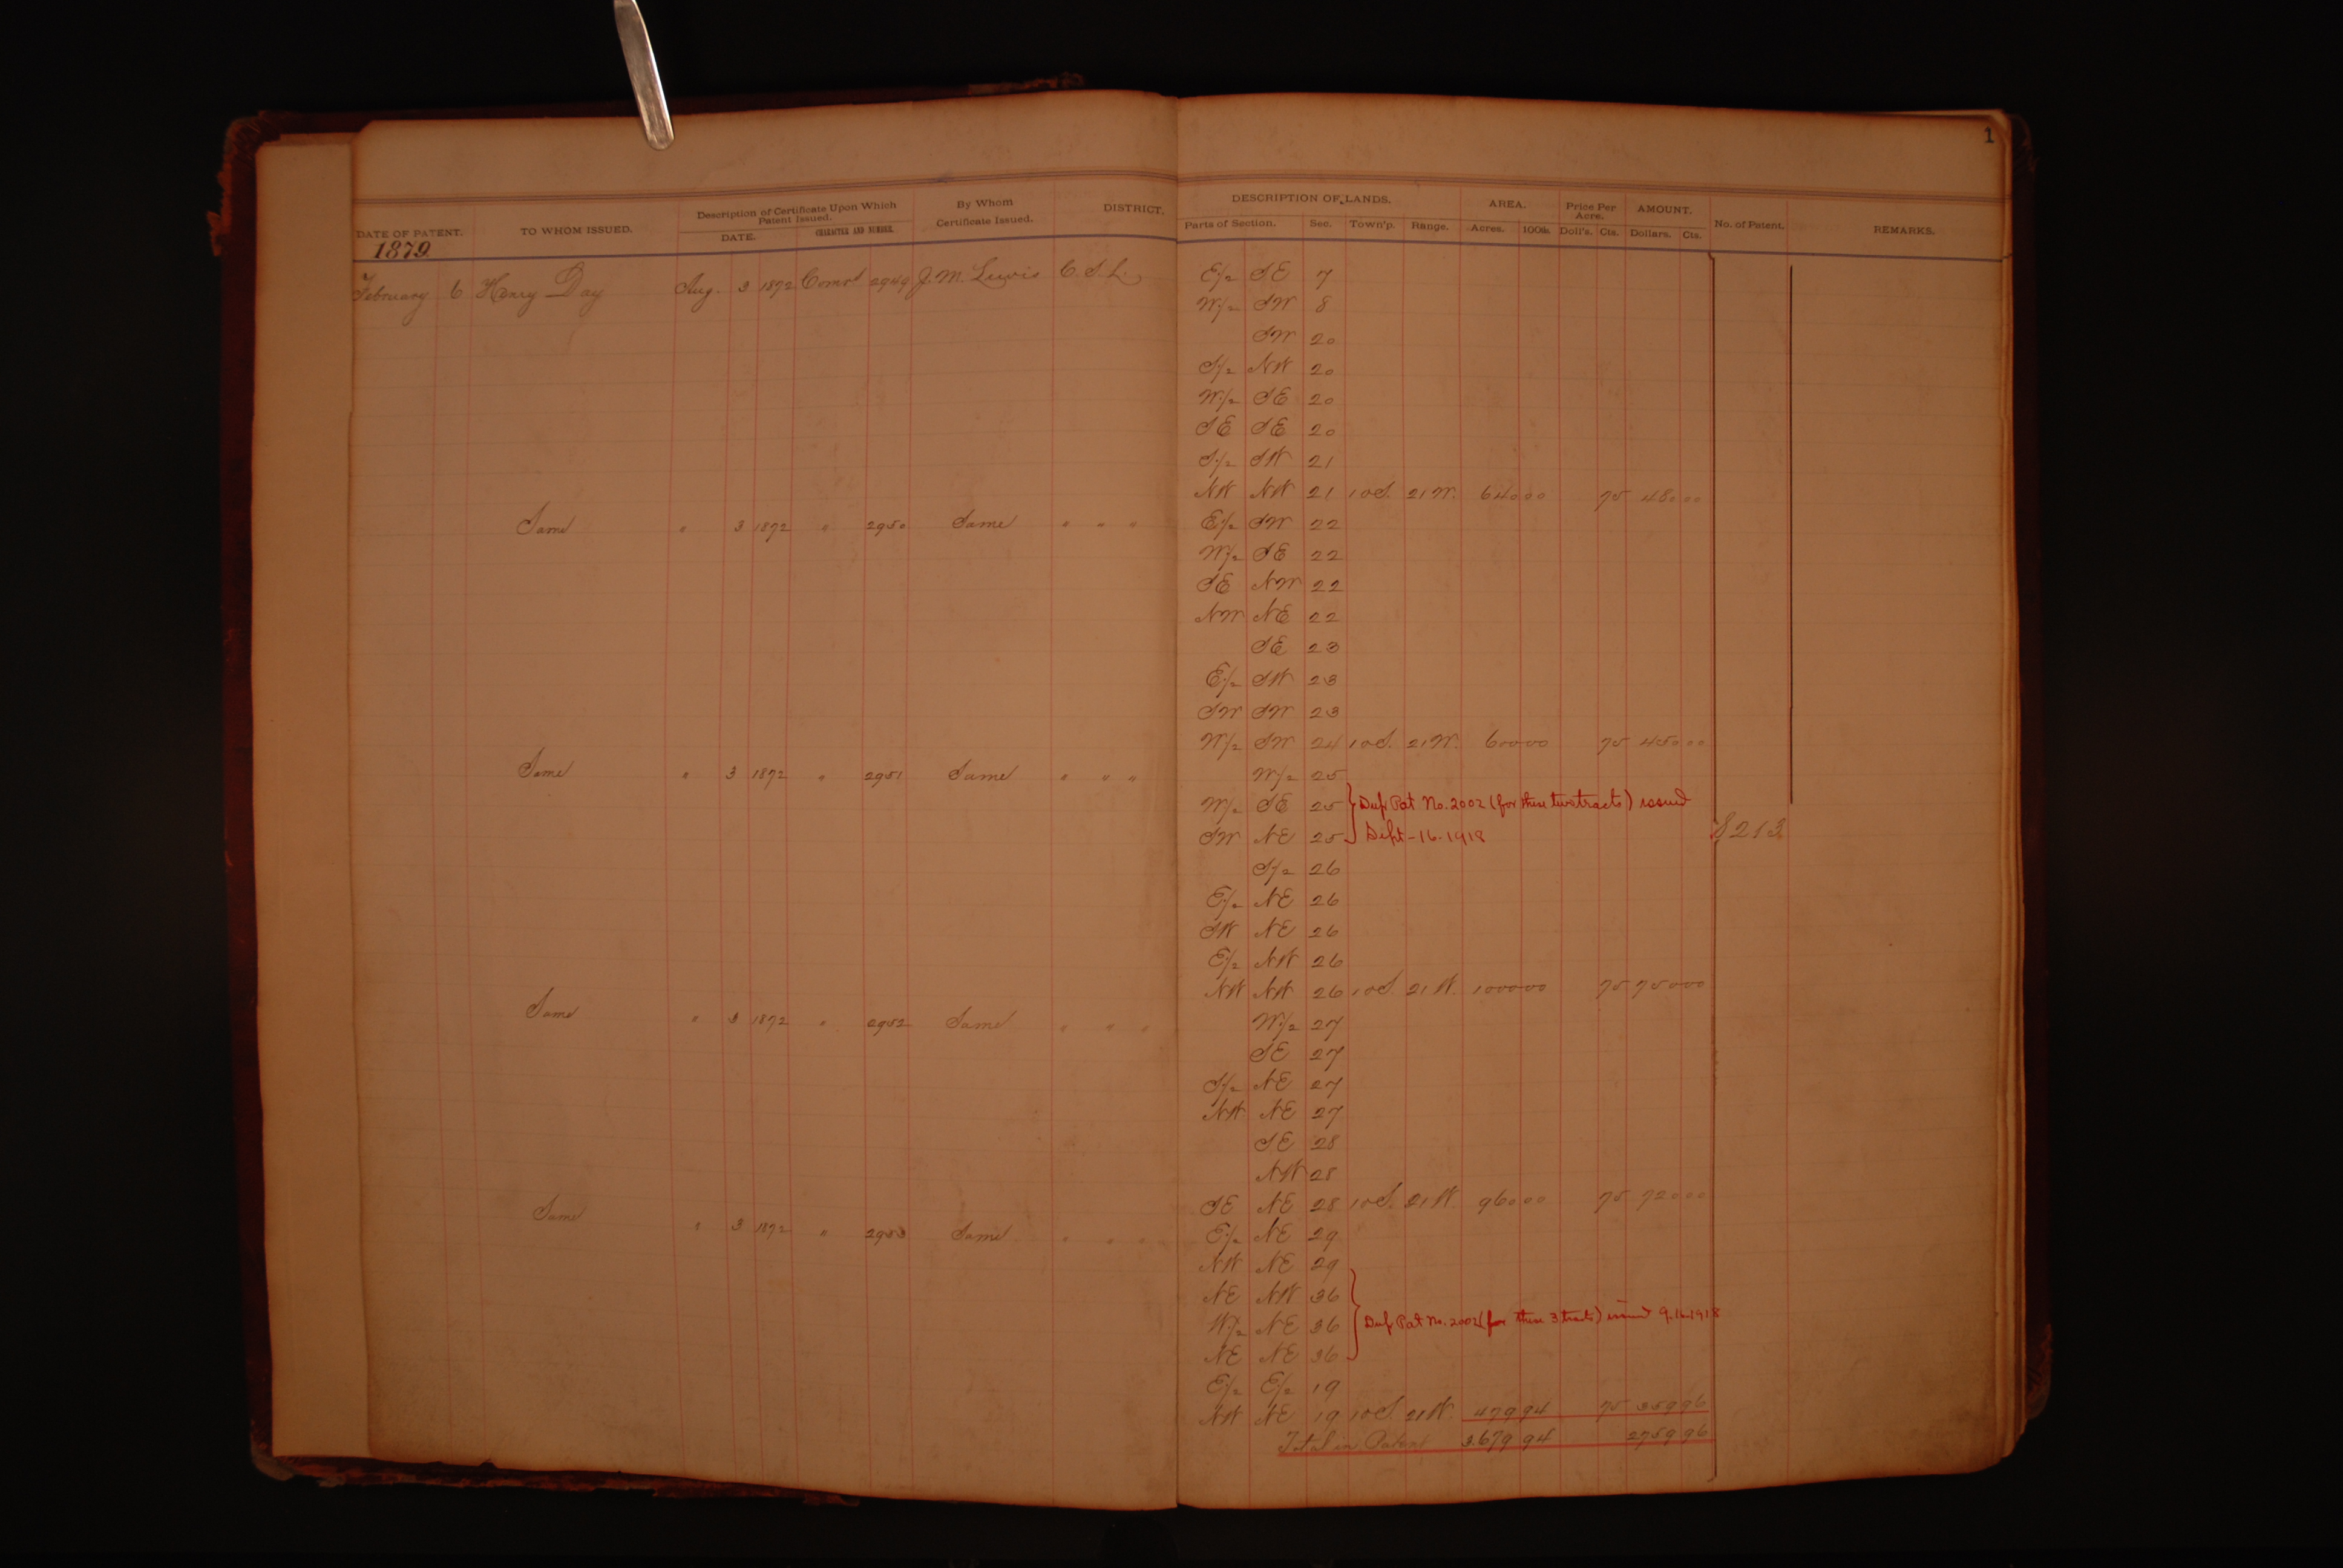 1
DATE OF PATENT. TO WHOM ISSUED. Description of Certificate Upon Which Patent Issued. DATE. CHARACTER AND NUMBER. By Whom Certificate Issued. DISTRICT. DESCRIPTION OF LANDS. Parts of Section. Sec. Town'p. Range. AREA. Acres. 100th. Price Per Acre. Doll's. Cts. AMOUNT. Dollars. Cts. No. of Patent. REMARKS.
1879
February 6 Henry Day Aug. 3 1872 Comr't 2949 J. M. Lewis C. S. L. E/2 SE 7
W/2 SW 8
SW 20
S/2 NW 20
W/2 SE 20
SE SE 20
S/2 SW 21
NW NW 21 10S. 21W. 640 00 75 480 00
Same " 3 1872 " 2950 Same " " " E/2 SW 22
W/2 SE 22
SE NW 22
NW NE 22
SE 23
E/2 SW 23
SW SW 23
W/2 SW 24 10S. 21W. 600 00 75 450 00
Same " 3 1872 " 2951 Same " " " W/2 25
W/2 SE 25 Dup Pat No. 2002 (for these two tracts) issued
SW NE 25 Sept-16-1918 8213
S/2 26
E/2 NE 26
SW NE 26
E/2 NW 26
NW NW 26 10S. 21W. 1000 00 75 750 00
Same " 3 1872 " 2952 Same " " " W/2 27
SE 27
S/2 NE 27
NW NE 27
SE 28
NW 28
SE NE 28 10S. 21W 960 00 75 720 00
Same " 3 1872 " 2953 Same " " " E/2 NE 29
NW NE 29
NE NW 36
W/2 NE 36 Dup Pat No. 2002 (for these 3 tracts) issued 9-16-1918
NE NE 36
E/2 E/2 19
NW NE 19 10S. 21W. 479 94 75 359 96
Total in Patent 3.679 94 2759 96